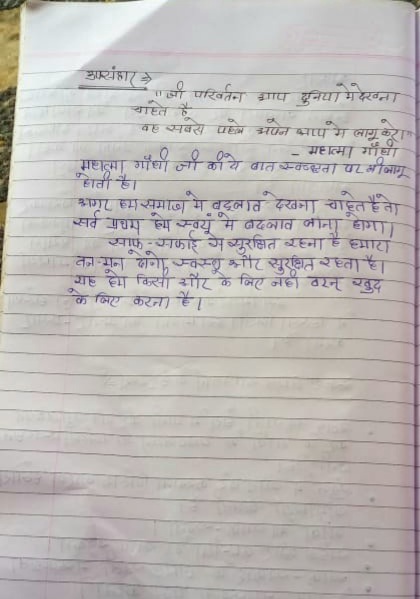 उपसंहार ⇒
"जो परिवर्तन आप दुनिया मे देखना
चाहते है
वह सबसे पहले अपने आप मे लागू करे।"
- महात्मा गाँधी
महात्मा गाँधी जी की ये बात स्वच्छता पर भी लागू
होती है।
अगर हम समाज मे बदलाव देखना चाहते है तो
सर्व प्रथम हमे स्वयं मे बदलाव लाना होगा।
साफ-सफाई से सुरक्षित रहना है हमारा
तन-मन दोनो स्वस्थ और सुरक्षित रहता है।
यह हमे किसी और के लिए नही वरन् खुद
के लिए करना है।